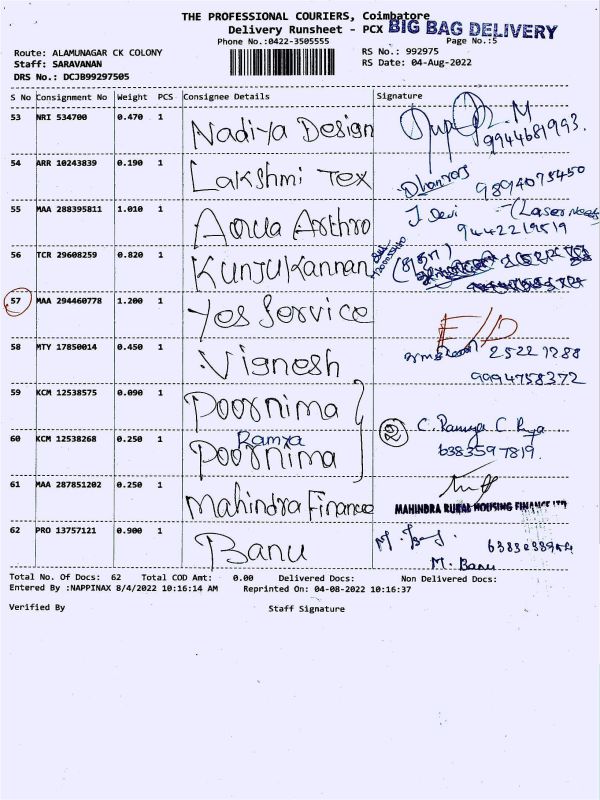 THE PROFESSIONAL COURIERS, Coimbatore
Delivery Runsheet - PCX BIG BAG DELIVERY
Phone No.:0422-3505555 Page No.:5
Route: ALAMUNAGAR CK COLONY RS No.: 992975
Staff: SARAVANAN RS Date: 04-Aug-2022
DRS No.: DCJB99297505
S No Consignment No Weight PCS Consignee Details Signature
53 NRI 534700 0.470 1 Nadiya Design M
9944681993.
54 ARR 10243839 0.190 1 Lakshmi Tex Dhanraj 9894075450
55 MAA 288395811 1.010 1 Aqua Arthro J Devi
9442219519
56 TCR 29608259 0.820 1 KUNJUKannan
57 MAA 294460778 1.200 1 Yes Service E/D
58 MTY 17850014 0.450 1 Vignesh 2522 7288
9994758372
59 KCM 12538575 0.090 1 Poornima
C. Ramya C. Rya
Ramya
60 KCM 12538268 0.250 1 Poornima 6383597819.
61 MAA 287851202 0.250 1 Mahindra Finance
MAHINDRA RURAL HOUSING FINANCE LTD
62 PRO 13757121 0.900 1 Banu
M. Banu
Total No. Of Docs: 62 Total COD Amt: 0.00 Delivered Docs: Non Delivered Docs:
Entered By :NAPPINAX 8/4/2022 10:16:14 AM Reprinted On: 04-08-2022 10:16:37
Verified By Staff Signature